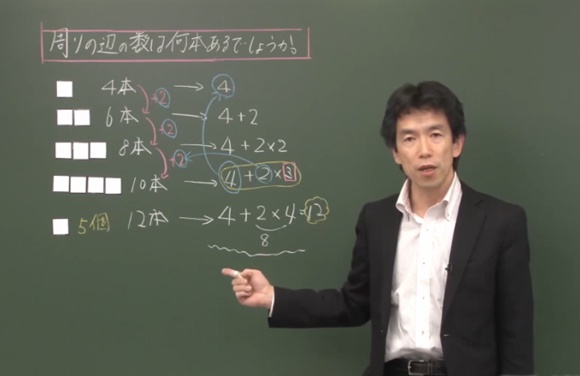 周りの辺の数は何本あるでしょうか!
4本 → 4
+2
6本 → 4+2
+2
8本 → 4+2×2
+2
10本 → 4+2×3
5個 12本 → 4+2×4=12
8